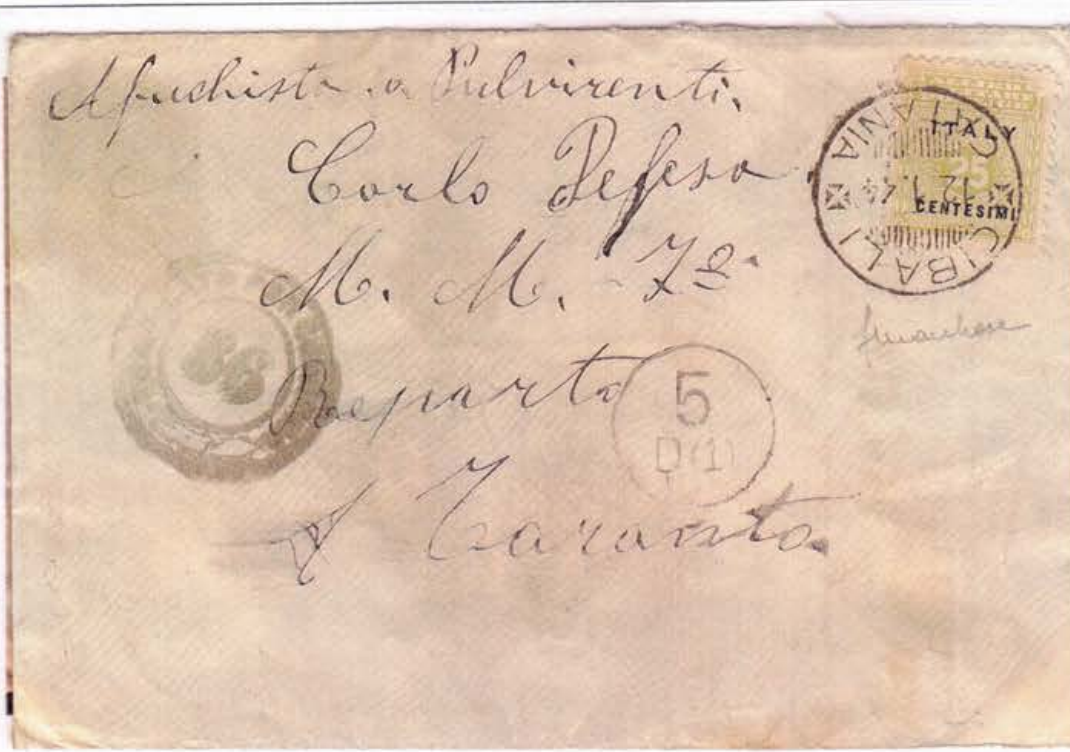 Afuchista a Pulvirenti.
Carlo Defesa
M. M. 7º
Reparto
A Taranto.
ITALY
25
CENTESIMI
CIBALI
CATANIA
12.1.44
5
D(1)